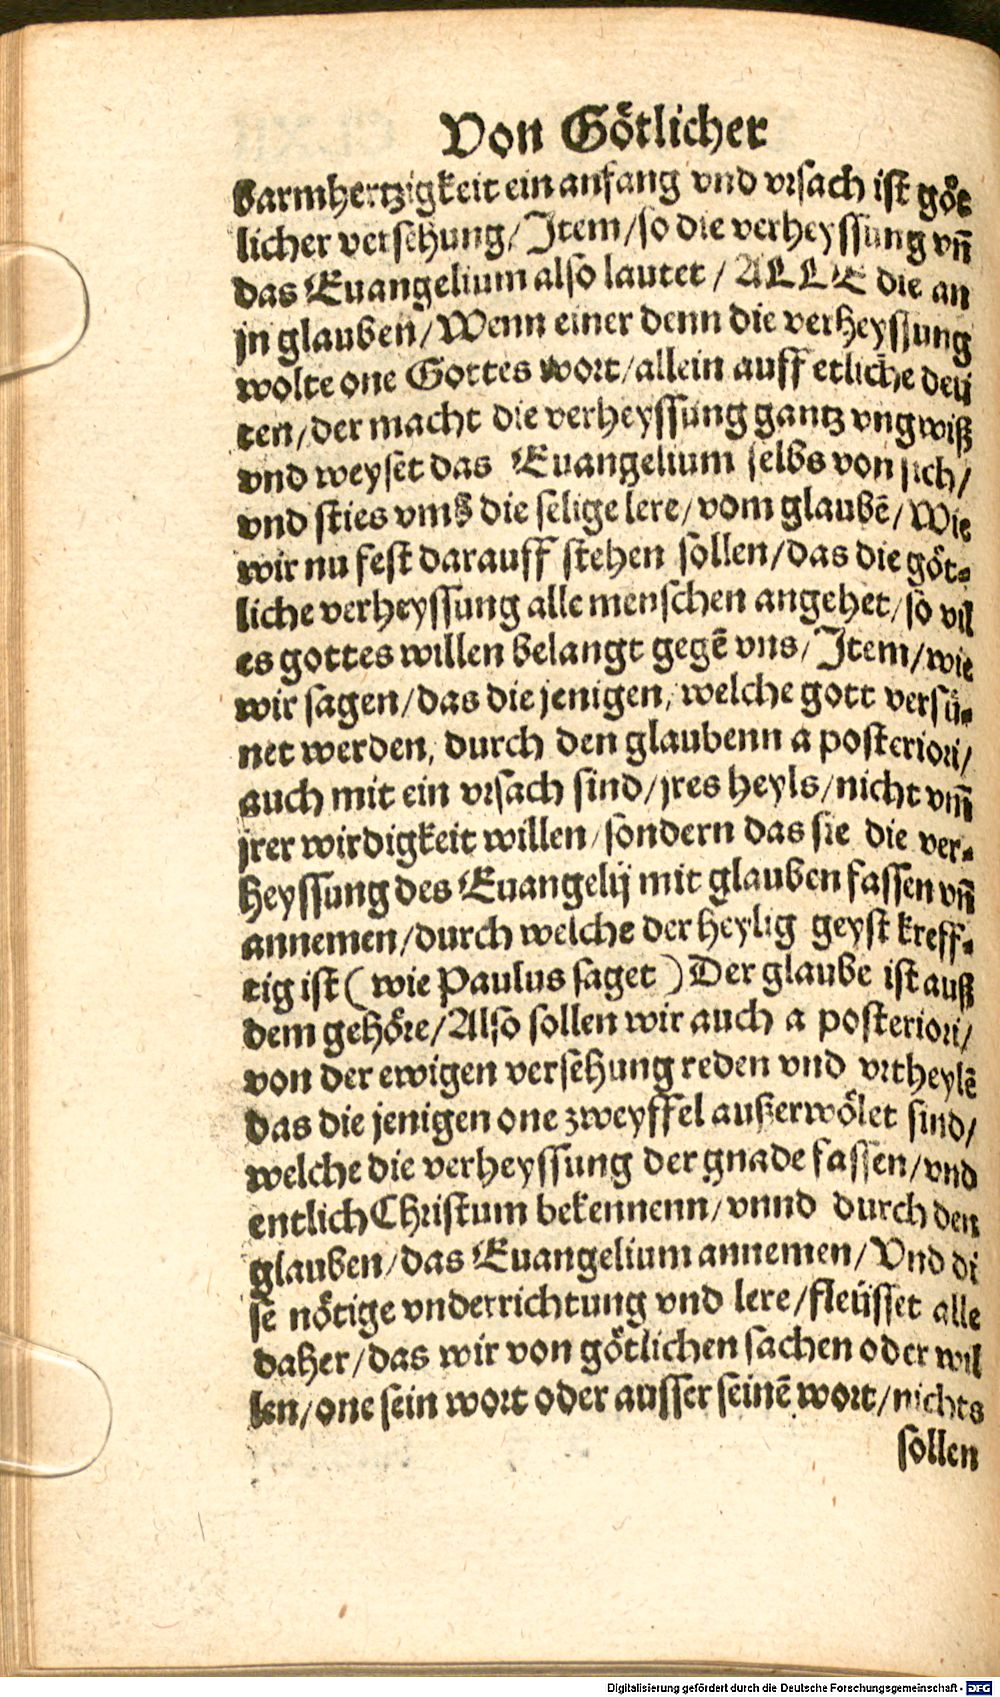 Von Götlicher
barmhertzigkeit ein anfang vnd vrsach ist göt
licher versehung/Item/so die verheyssung vñ
das Euangelium also lautet/ALLE die an
jn glauben/Wenn einer denn die verheyssung
wolte one Gottes wort/allein auff etliche deü
ten/der macht die verheyssung gantz vngwiß
vnd weyset das Euangelium selbs von sich/
vnd sties vmb die selige lere/vom glaubē/Wie
wir nu fest darauff stehen sollen/das die göt-
liche verheyssung alle menschen angehet/so vil
es gottes willen belangt gegē vns/Item/wie
wir sagen/das die jenigen/welche gott versü-
net werden, durch den glaubenn a posteriori/
auch mit ein vrsach sind/jres heyls/nicht vm̄
jrer wirdigkeit willen/sondern das sie die ver-
heyssung des Euangelij mit glauben fassen vñ
annemen/durch welche der heylig geyst kreff-
tig ist (wie Paulus saget) Der glaube ist auß
dem gehöre/Also sollen wir auch a posteriori/
von der ewigen versehung reden vnd vrtheylē
das die jenigen one zweyffel außerwölet sind/
welche die verheyssung der gnade fassen/vnd
entlich Christum bekennenn/vnnd durch den
glauben/das Euangelium annemen/Vnd di
se nötige vnderrichtung vnd lere/fleüsset alle
daher/das wir von götlichen sachen oder wil
len/one sein wort oder ausser seinē wort/nichts
sollen
Digitalisierung gefördert durch die Deutsche Forschungsgemeinschaft - DFG